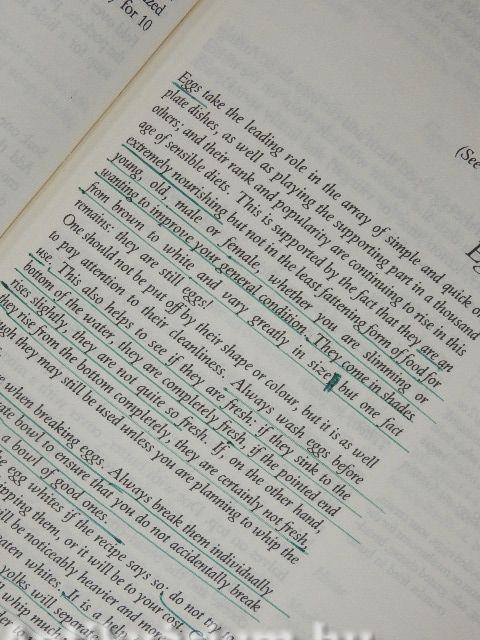 ized
y for 10
(See
Eggs take the leading role in the array of simple and quick o
plate dishes, as well as playing the supporting part in a thousand
others, and their rank and popularity are continuing to rise in this
age of sensible diets. This is supported by the fact that they are an
extremely nourishing but not in the least fattening form of food for
young, old, male or female, whether you are slimming or
wanting to improve your general condition. They come in shades
from brown to white and vary greatly in size, but one fact
remains: they are still eggs!
One should not be put off by their shape or colour, but it is as well
to pay attention to their cleanliness. Always wash eggs before
use. This also helps to see if they are fresh: if they sink to the
bottom of the water, they are completely fresh, if the pointed end
rises slightly, they are not quite so fresh. If, on the other hand,
they rise from the bottom completely, they are certainly not fresh,
ugh they may still be used unless you are planning to whip the
s.
e when breaking eggs. Always break them individually
ate bowl to ensure that you do not accidentally break
a bowl of good ones.
e egg whites if the recipe says so: do not try to
ipping them, or it will be to your cost
ill be noticeably heavier and mo
eaten whites. It is a help
yolks will separat
whip mu